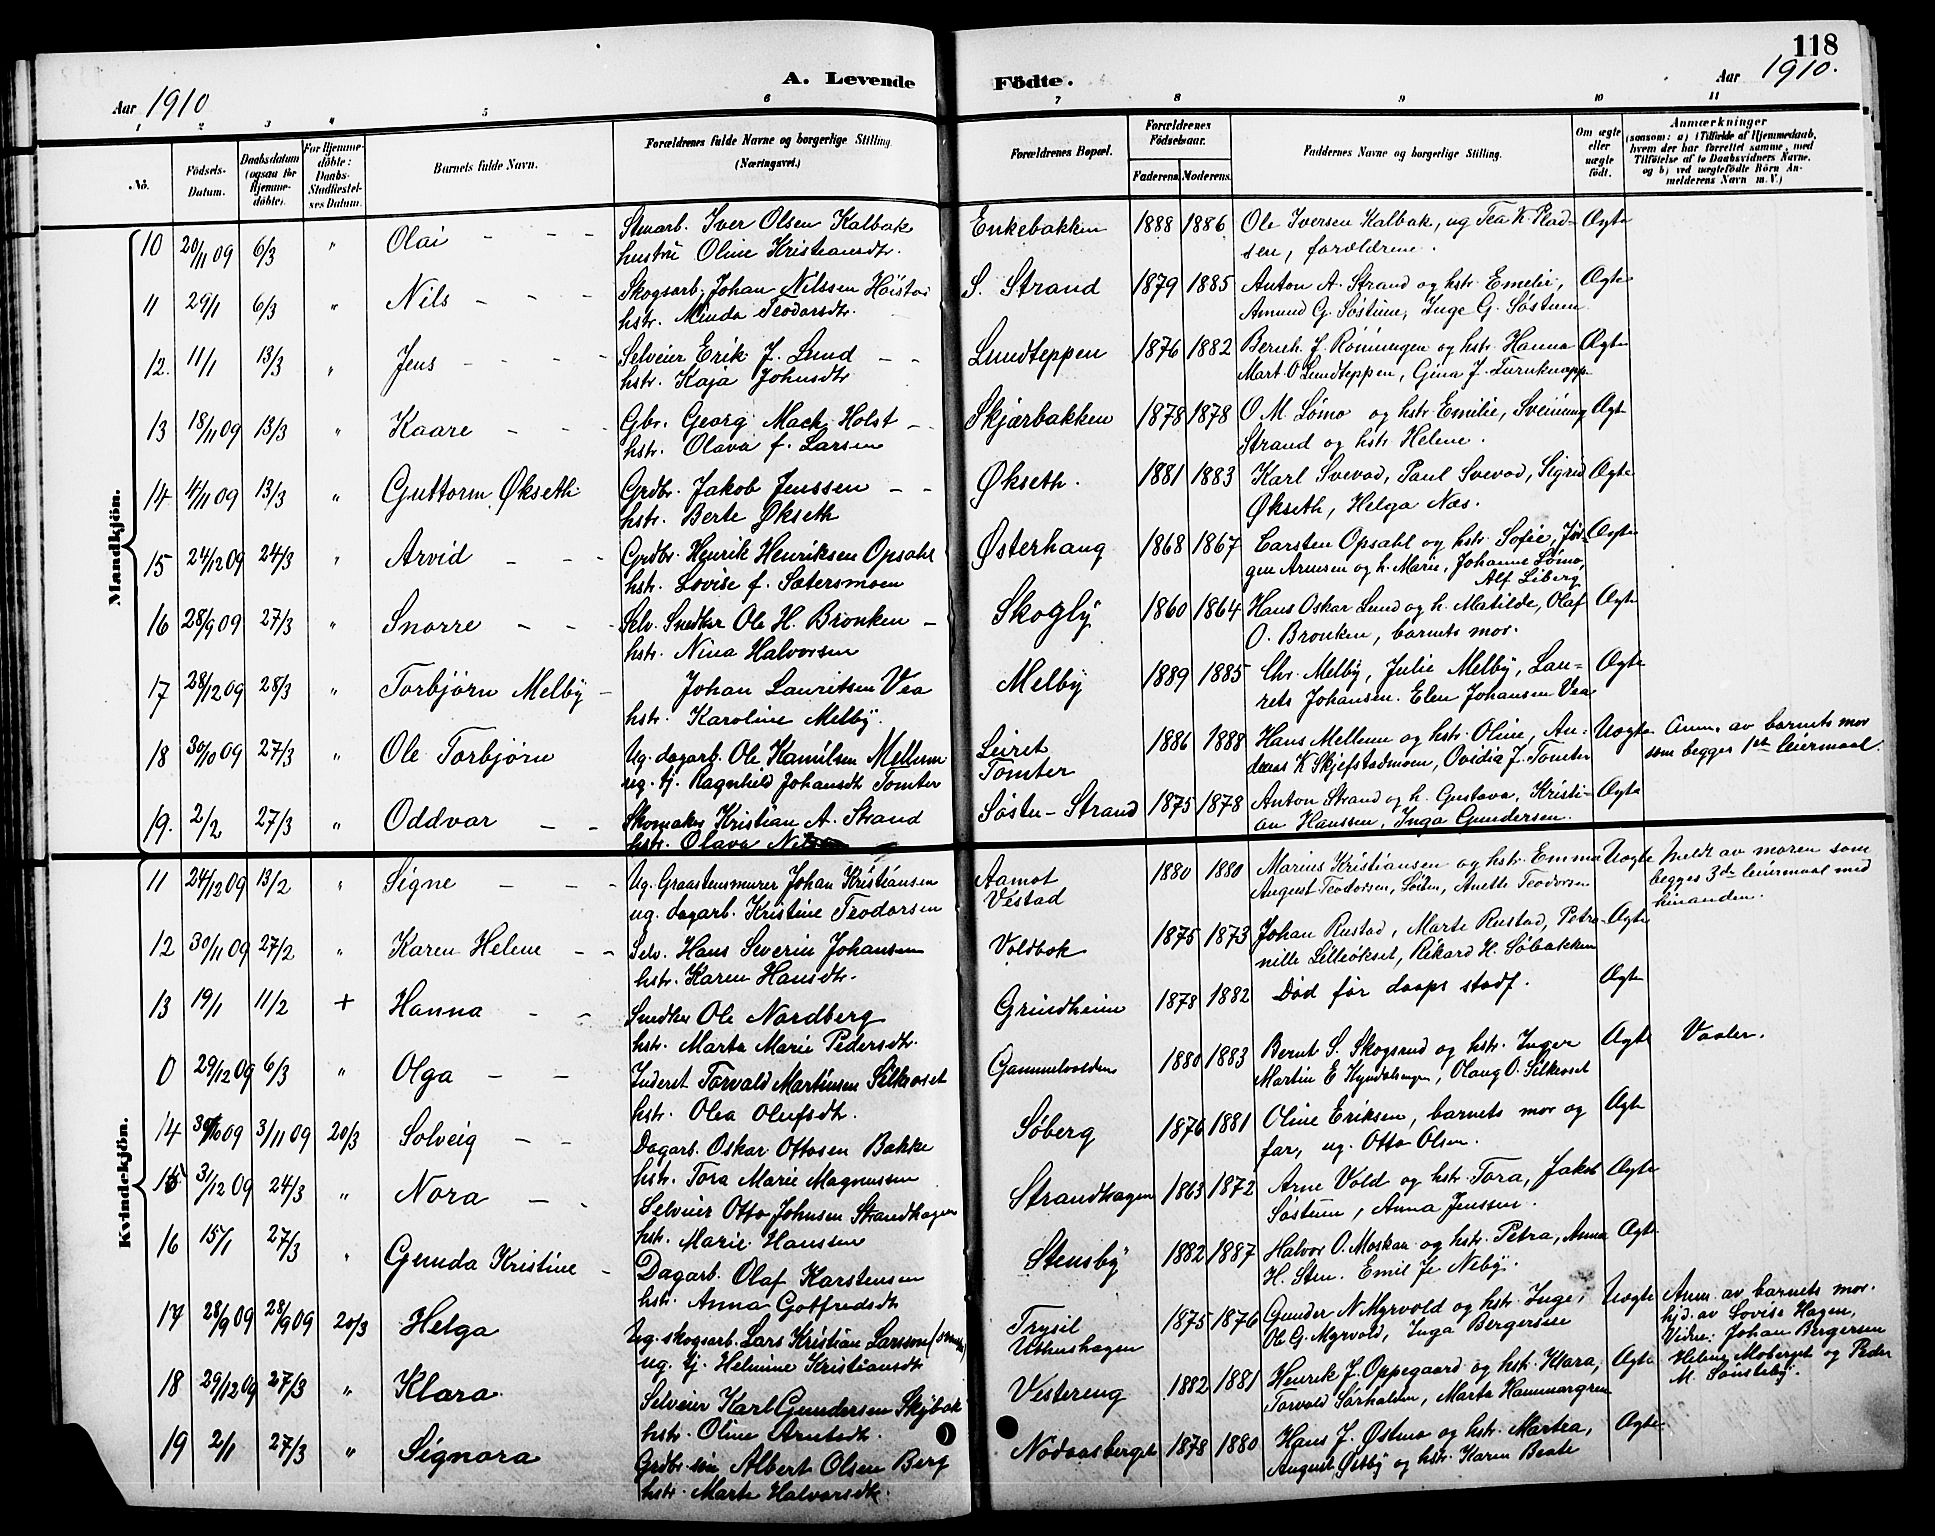 118
A. Levende Födte.
Aar 1910
Aar 1910.
1 2 3 4 5 6 7 8 9 10 11
No.
Födsels-Datum.
Daabsdatum (ogsaa for Hjemmedöbte).
For Hjemmedöbte: Daabs-Stadfæstelses Datum.
Barnets fulde Navn.
Forældrenes fulde Navne og borgerlige Stilling (Næringsvei.)
Forældrenes Bopæl.
Forældrenes Födselsaar.
Faderens. Moderens.
Faddernes Navne og borgerlige Stilling.
Om ægte eller uægte födt.
Anmærkninger
(saasom: a) i Tilfælde af Hjemmedaab, hvem der har forrettet samme, med Tilföielse af to Daabsvidners Navne, og b) ved uægtefödte Börn Anmelderens Navn m. V.)
Mandkjön.
10 20/11 09 6/3 " Olai - - - Stenarb. Iver Olsen Kalbak Enkebakken 1888 1886 Ole Iversen Kalbak, ug Tea K. Plad- Ægte
hustru Oline Kristiansdtr. sen, forældrene.
11 29/1 6/3 " Nils - - - Skogsarb. Johan Nilssen S. Strand 1879 1885 Anton A. Strand og hstr. Emelie, Ægte
hstr. Minda Teodorsdtr. Amund G. Søstuen, Inge G. Søstuen
12. 11/1 13/3 " Jens - - - Selveier Erik J. Lund - - Lundteppen 1876 1882 Bernh. J. Rønningen og hstr. Hanna Ægte
hstr. Kaja Johnsdtr Mart. O Lundteppen, Gina J. Furuknapp
13 18/11 09 13/3 " Kaare - - - Gbr. Georg Mach Holst - - Skjærbakken 1878 1878 O. M. Sømo og hstr. Emilie, Sveinung Ægte
hstr. Olava f. Larsen Strand og hstr Helene.
14 4/11 09 13/3 " Guttorm Økseth Grdbr. Jakob Jenssen - - Økseth. 1881 1883 Karl Svevad, Paul Svevad, Sigrid Ægte
hstr. Berte Økseth Økseth, Helga Næs.
15 24/12 09 24/3 " Arvid - - Grdbr. Henrik Henriksen Opsahl Østerhaug 1868 1867 Carsten Opsahl og hstr. Sofie, Jør- Ægte
hstr. Lovise f. Sætersmoen gen Arnesen og h. Marie, Johanne Sømo,
Alf Liberg
16 28/9 09 27/3 " Snorre - - - Selv. Snedker Ole H. Bronken - Skogly 1860 1864 Hans Oskar Lund og h. Matilde, Olaf Ægte
hstr. Nina Halvorsen O. Bronken, barnets mor.
17 28/12 09 28/3 " Torbjørn Melby - Johan Lauritsen Vea Melby 1889 1885 Chr. Melby, Julie Melby, Lau- Ægte
hstr. Karoline Melby. rets Johansen. Elen Johansen Vea
18 30/10 09 27/3 " Ole Torbjørn Ug. dagarb. Ole Kamilsen Mellem Leiret 1886 1888 Hans Mellem og hstr. Oline, An- Uægte Anm. av barnets mor
ug. tj. Ragnhild Johansdt Tomter Tomter dreas K Skjefstadmoen, Ovidia J. Tomter som begges 1ste leiermaal.
19. 2/2 27/3 " Oddvar - - Skomaker Kristian A. Strand Søstu-Strand 1875 1878 Anton Strand og h. Gustava, Kristi- Ægte
hstr. Olava an Hanssen, Inga Gundersen.
Kvindekjön.
11 24/12 09 13/2 " Signe - - - Ug. Graastensmurer Johan Kristiansen Aamot 1880 1880 Marius Kristiansen og hstr. Emma Uægte Meldt av moren som
ug. dagarb. Kristine Teodorsen Vestad August Teodorsen, Anette Teodorsen begges 3de leiermaal med
hinanden.
12 30/11 09 27/2 " Karen Helene - - Selv. Hans Severin Johansen Voldbok 1875 1873 Johan Rustad, Marte Rustad, Petra Ægte
hstr. Karen Hansdtr. nille Lilleøkset, Rikard H. Søbakken
13 19/1 11/2 + Hanna - - Snedker Ole Nordberg Grindheim 1878 1882 Død før daaps stadf. Ægte
hstr. Marta Marie Pedersdtr.
0 29/12 09 6/3 " Olga - - Inderst Torvald Martinsen Silkeoset Gammelvolden 1880 1883 Bernt S. Skogsrud og hstr. Inger Ægte Vaaler.
hstr. Olea Olufsdtr. Martin E Kyndalsengen, Olaug O. Silkeoset
14 30/10 09 3/11 09 20/3 Solveig - - Dagarb. Oskar Ottosen Bakke Søberg 1876 1881 Oline Eriksen, barnets mor og Ægte
hstr. Tora Marie Magnussen far, ug. Otto Olsen.
15 31/12 09 24/3 " Nora - - Selveier Otto Johnsen Strandhagen Strandhagen 1863 1872 Arne Vold og hstr. Tora, Jakob Ægte
hstr. Marie Hanssen Søstuen, Anna Jenssen.
16 15/1 27/3 " Gunda Kristine - Dagarb. Olaf Karstensen Stensby 1882 1887 Halvor O. Moskar og hstr. Petra, Anna Ægte
hstr. Anna Gotfredsdtr H. Sten. Emil Neby.
17 28/9 09 28/9 09 20/3 Helga Ug. skogsarb. Lars Kristian Larssen Trysil 1875 1876 Gunder N Myrvold og hstr. Inge, Uægte Anm. av barnets mor.
ug. tj. Helmine Kristiansdt Ole G. Myrvold, Inga Bergersen hjd. av Lovise Hagen,
Vidne: Johan Bergersen
Moberget og Peder
M. Sønsteby.
18 29/12 09 27/3 " Klara Selveier Karl Gundersen Skybak Vestereng 1882 1881 Henrik J. Oppegaard og hstr. Klara, Ægte
hstr. Oline Arntsdt. Torvald Sørhalden, Marta Hammargren
19 2/1 27/3 " Signora Grdbr. Albert Olsen Berg Nødaasberget 1878 1880 Hans J. Østmo og hstr. Martea, Ægte
hstr. Marte Halvorsdt. August Østby og hstr. Karen Beate